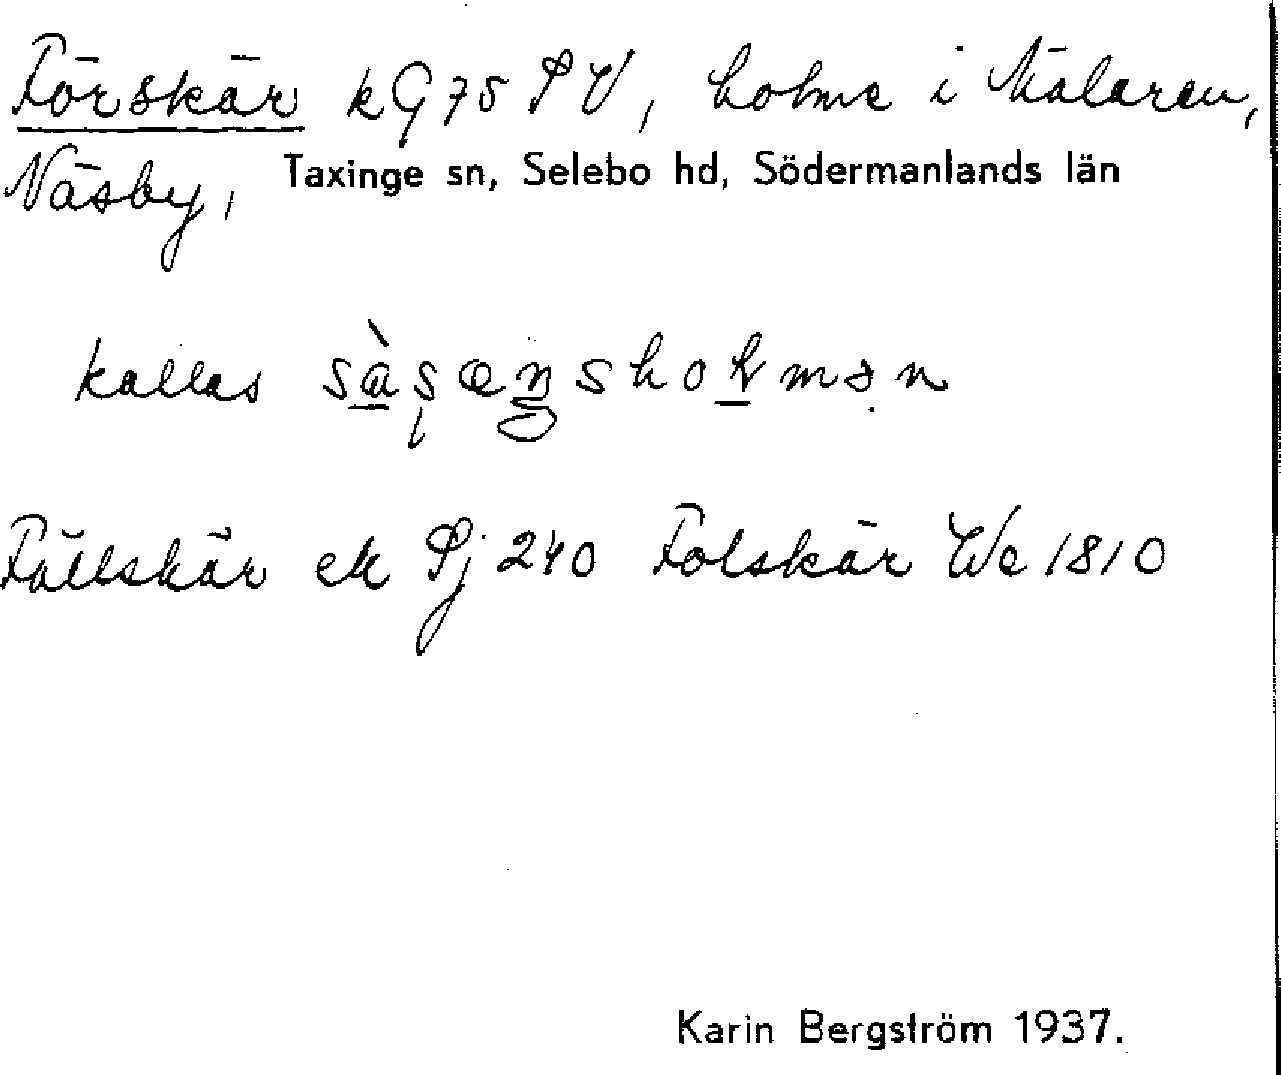 Förskär kG 75 SV, holme i Mälaren,
Näsby, Taxinge sn, Selebo hd, Södermanlands län
kallas
Fällskär ek Sj 240 Folskär We 1810
Karin Bergström 1937.